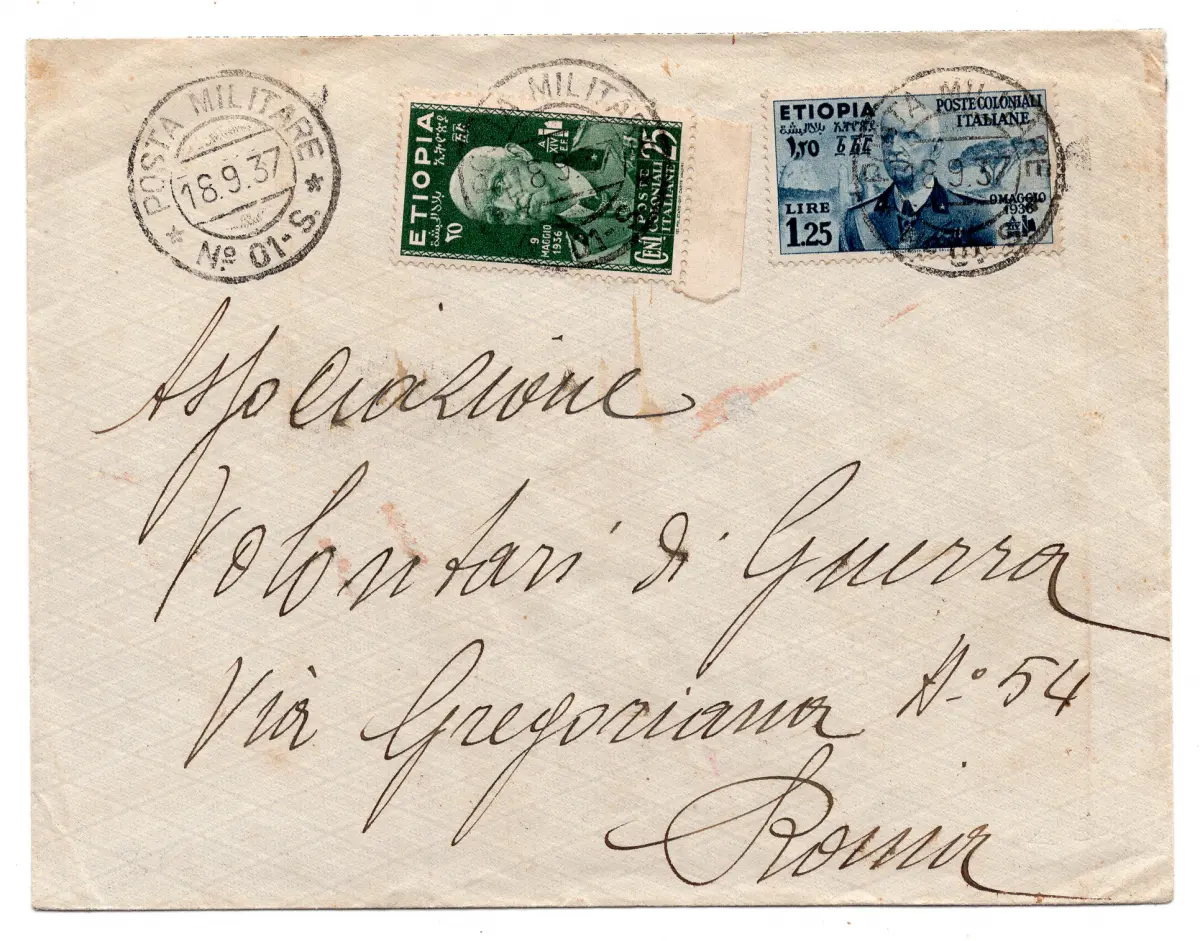 POSTA MILITARE
18.9.37
* Nº 01-S. *
ETIOPIA
ኢትዮጵያ
٢٥
9
MAGGIO
1936
A.
XIV
E.F.
POSTE
COLONIALI
ITALIANE
CENT 25
POSTA MILITARE
ETIOPIA
POSTE COLONIALI
ITALIANE
ኢትዮጵያ
LIRE
1.25
9 MAGGIO
1936
POSTA MILITARE
18.9.37
Associazione
Volontari di Guerra
Vià Gregoriana Nº 54
Roma